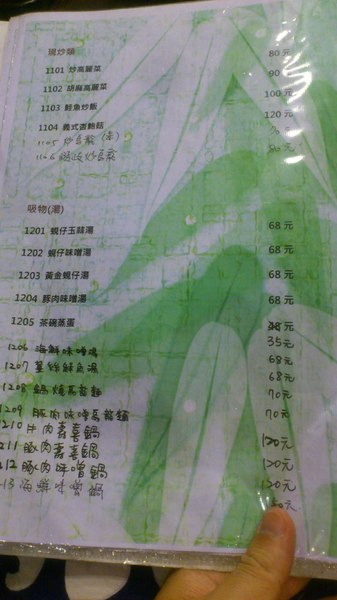 現炒類
1101 炒高麗菜 80 元
1102 胡麻高麗菜 90
1103 鮭魚炒飯 100 元
1104 義式杏鮑菇 120 元
1105 炒烏龍 70 元
1106 炒烏龍 80 元
吸物(湯)
1201 蜆仔玉蒜湯 68 元
1202 蜆仔味噌湯 68 元
1203 黃金蜆仔湯 68 元
1204 豚肉味噌湯 68 元
1205 茶碗蒸蛋 元
1206 海鮮味噌湯 35元
1207 薑絲鮮魚湯 68元
1208 鍋燒烏龍麵 68元
1209 豚肉味噌烏龍麵 70元
1210 牛肉壽喜鍋 70元
211 豚肉壽喜鍋 120元
212 豚肉味噌鍋 120元
13 海鮮味噌鍋 120元
50元